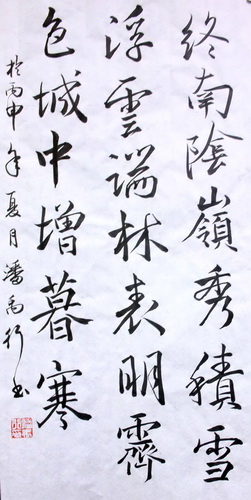 終南陰嶺秀積雪
浮雲端林表明霽
色城中增暮寒
於丙申年夏月潘禹行书